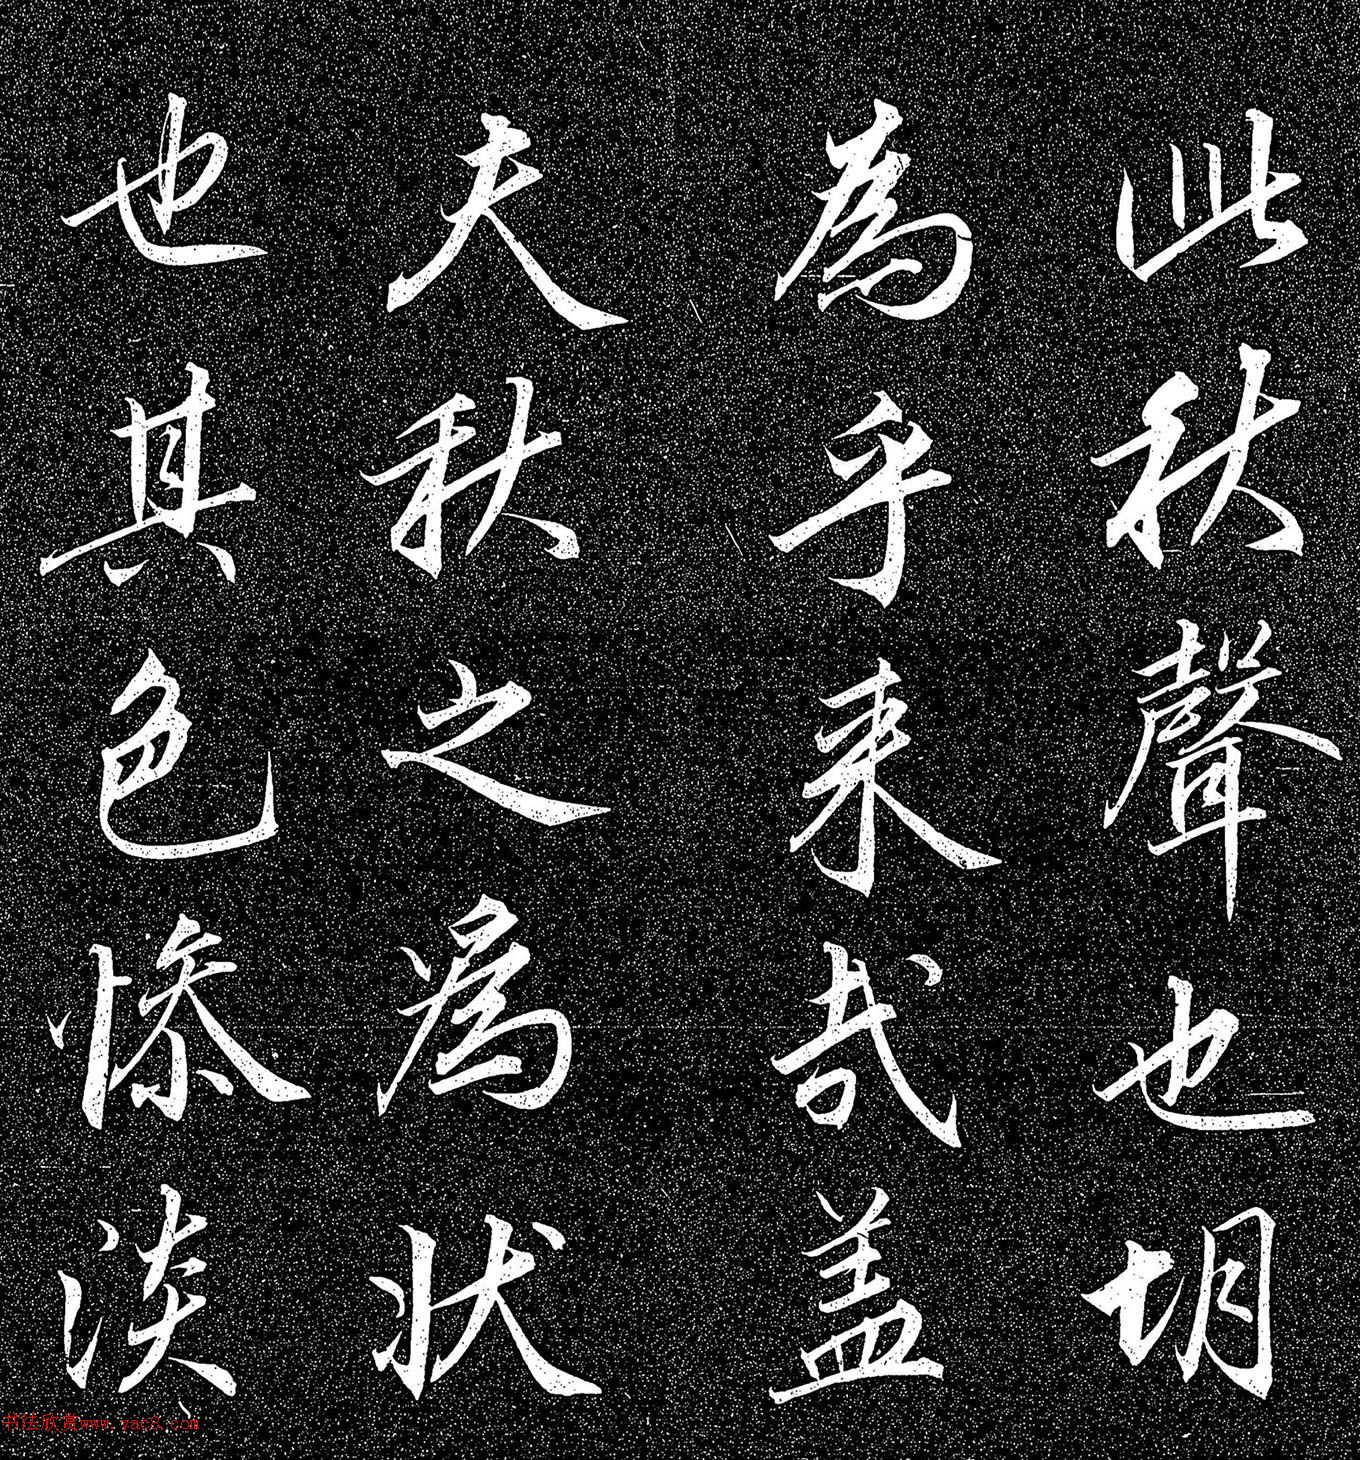 此秋聲也胡
為乎来哉盖
夫秋之為状
也其色惨淡
书法欣赏www.yac8.com